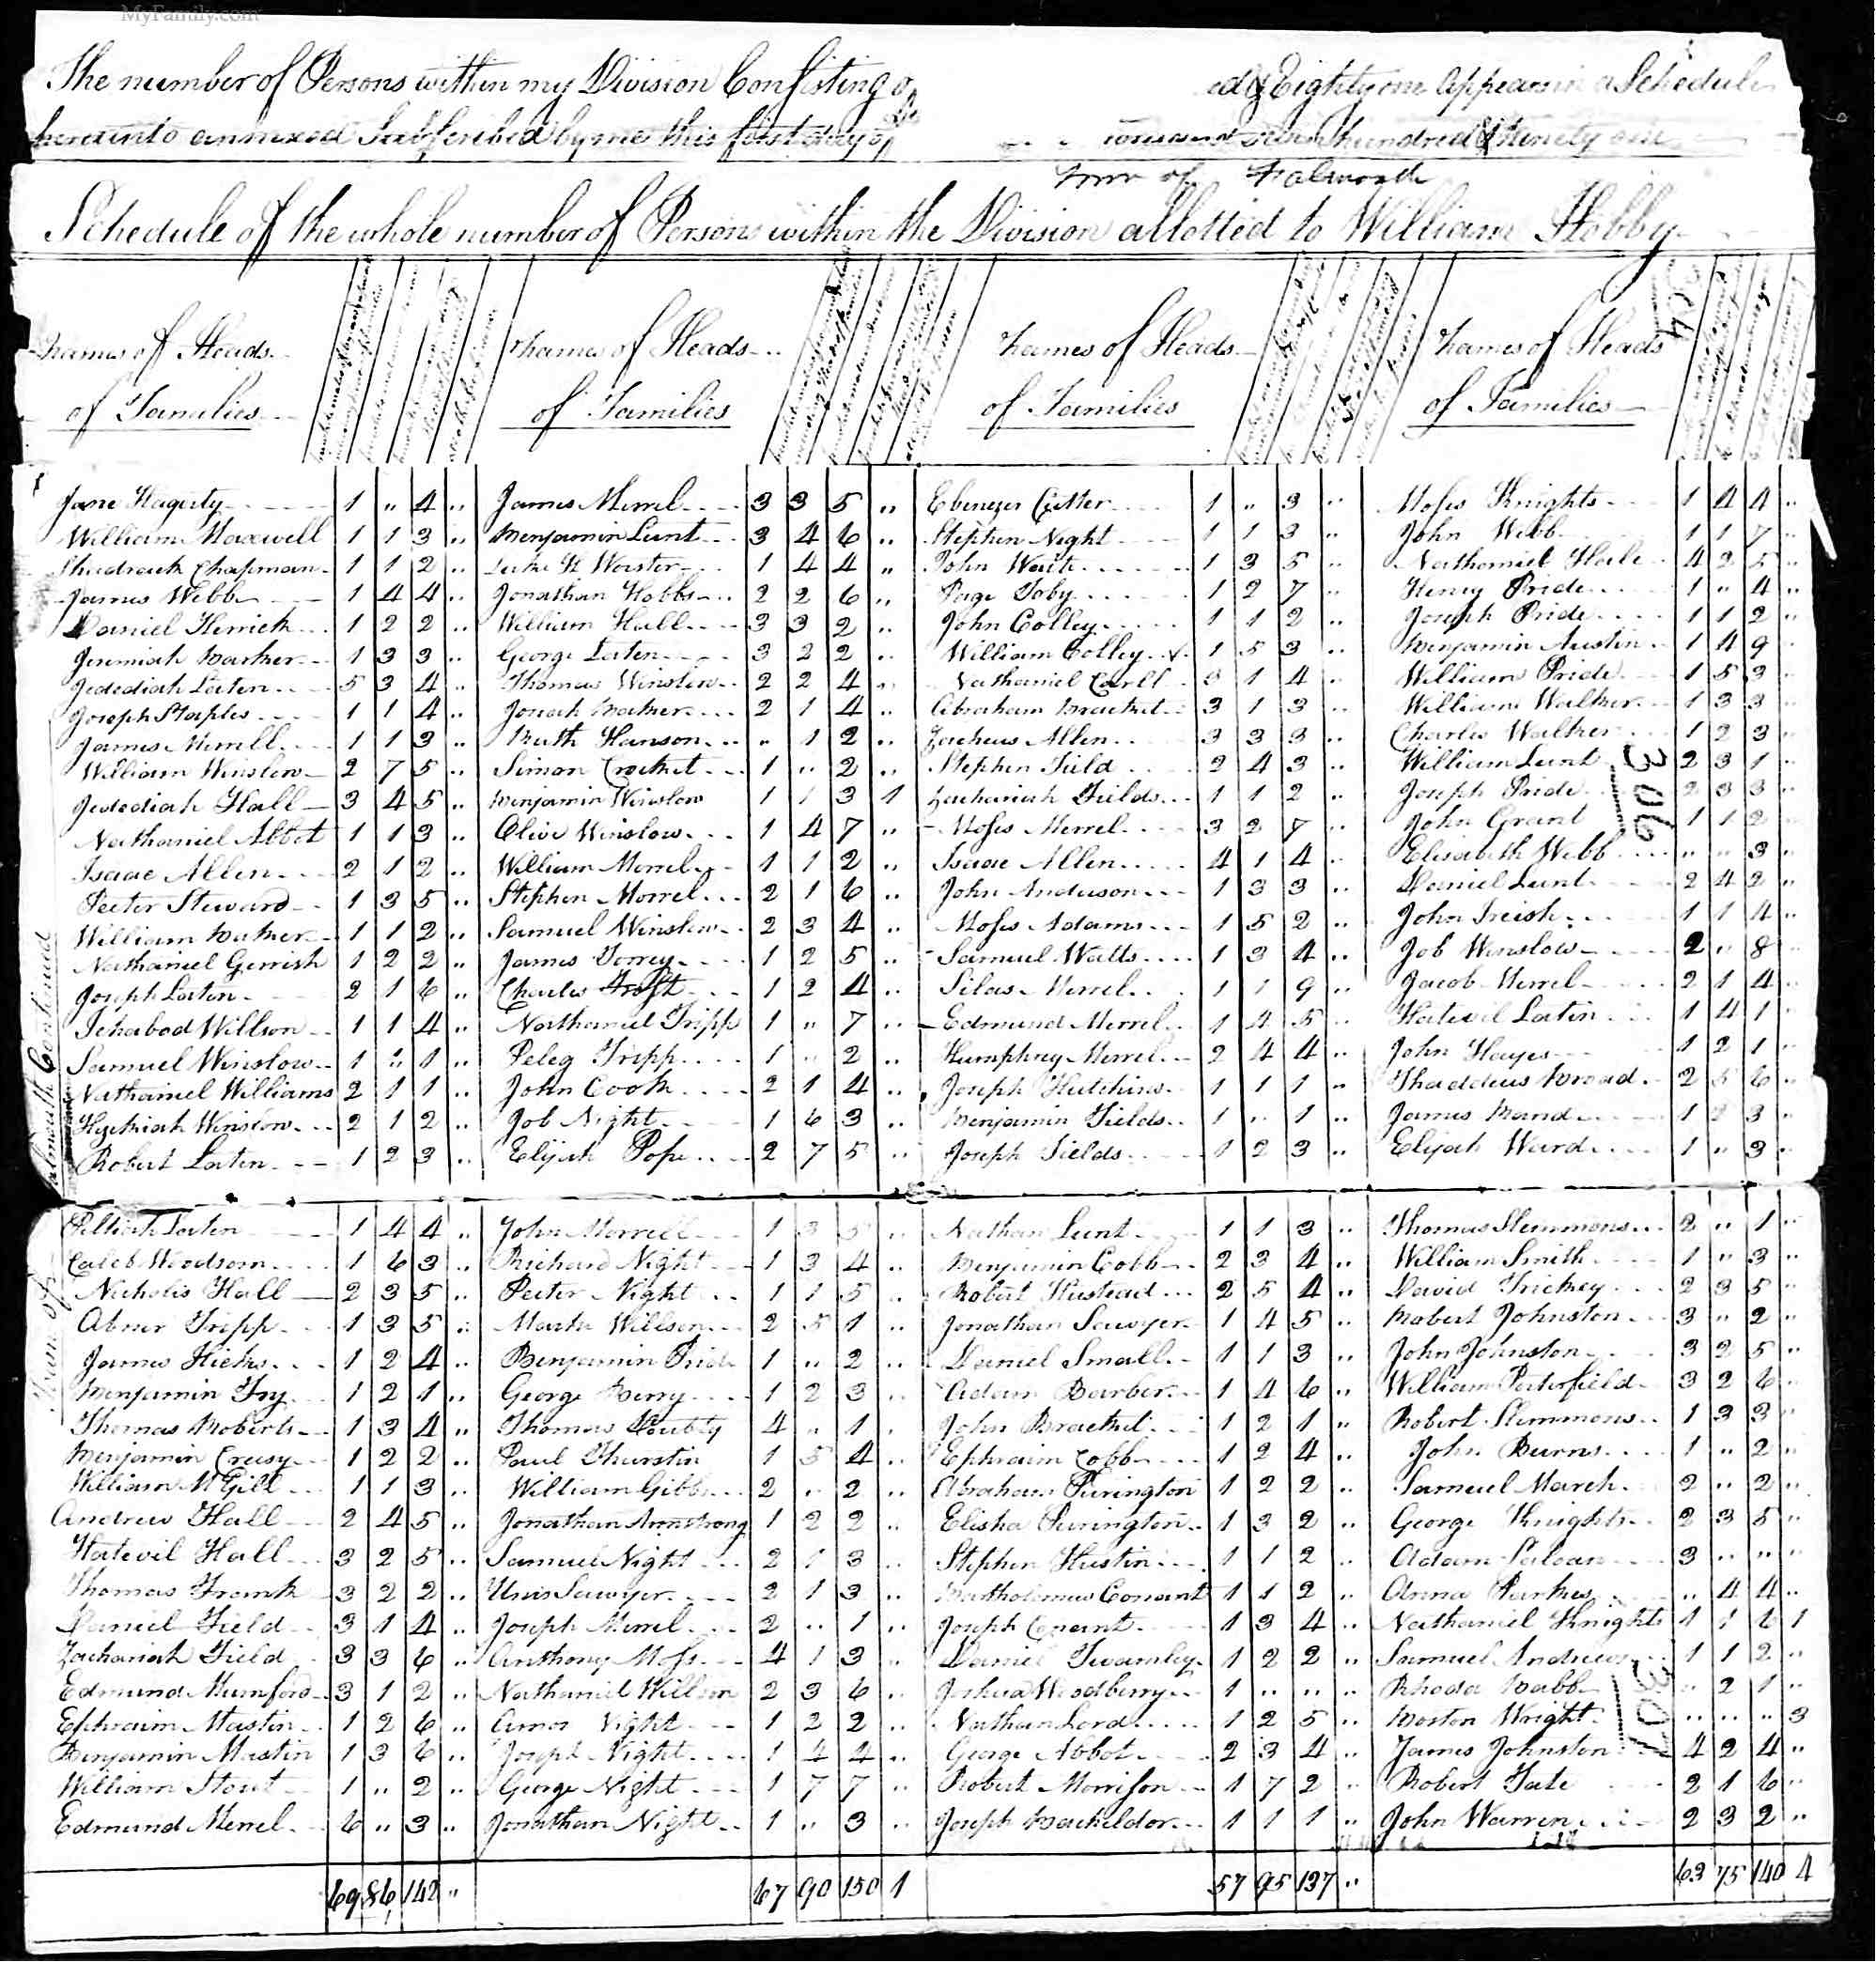 MyFamily.com
The number of Persons within my Division Consisting o ed & Eighty one Appears in a Schedule
hereunto annexed Subscribed by me this first day of seven hundred & Ninety one
Town of Falmouth
Schedule of the whole number of Persons within the Division allotted to William Hobby
304
Names of Heads Names of Heads Names of Heads Names of Heads
of Families of Families of Families of Families
Jane Hagerty 1 " 4 " James Merrel 3 3 5 " Ebenezer Cutter 1 " 3 " Moses Knights 1 4 4 "
William Maxwell 1 1 3 " Benjamin Lunt 3 4 6 " Stephen Night 1 1 3 " John Webb 1 1 7 "
Shadrack Chapman 1 1 2 " Luke Worster 1 4 4 " John Waite 1 3 5 " Nathaniel Hale 4 2 5 "
James Webb 1 4 4 " Jonathan Hobbs 2 2 6 " Page Toby 1 2 7 " Henry Pride 1 " 4 "
Daniel Herrick 1 2 2 " William Hall 3 3 2 " John Colley 1 1 2 " Joseph Pride 1 1 2 "
Jeremiah Barker 1 3 3 " George Laten 3 2 2 " William Colley 1 5 3 " Benjamin Austin 1 4 9 "
Jedediah Laten 5 3 4 " Thomas Winslow 2 2 4 " Nathaniel Carll 3 1 4 " William Pride 1 5 3 "
Joseph Staples 1 1 4 " Josiah Barker 2 1 4 " Abraham Bracket 3 1 3 " William Walker 1 3 3 "
James Merrill 1 1 3 " Ruth Hanson " 1 2 " Zacheus Allen 3 3 3 " Charles Walker 1 2 3 "
William Winslow 2 7 5 " Simon Crocket 1 " 2 " Stephen Field 2 4 3 " William Lunt 2 3 1 "
Jedediah Hall 3 4 5 " Benjamin Winslow 1 1 3 1 Zachariah Fields 1 1 2 " Joseph Pride 2 3 3 "
306
Nathaniel Abbot 1 1 3 " Olive Winslow 1 4 7 " Moses Merrel 3 2 7 " John Grant 1 1 2 "
Isaac Allen 2 1 2 " William Morrel 1 1 2 " Isaac Allen 4 1 4 " Elisabeth Webb " " 3 "
Peeter Steward 1 3 5 " Stephen Morrel 2 1 6 " John Anderson 1 3 3 " Daniel Lunt 2 4 2 "
William Barker 1 1 2 " Samuel Winslow 2 3 4 " Moses Adams 1 5 2 " John Irish 1 1 4 "
Nathaniel Gerrish 1 2 2 " James Torrey 1 2 5 " Samuel Watts 1 3 4 " Job Winslow 2 " 8 "
Joseph Laten 2 1 6 " Charles Frost 1 2 4 " Silas Merrel 1 1 9 " Jacob Merrel 2 1 4 "
Ichabod Willson 1 1 4 " Nathaniel Tripp 1 " 7 " Edmund Merrel 1 4 5 " Hatevil Laten 1 4 1 "
Samuel Winslow 1 " 1 " Peleg Tripp 1 " 2 " Humphrey Merrel 2 4 4 " John Hayes 1 2 1 "
Nathaniel Williams 2 1 1 " John Cook 2 1 4 " Joseph Hutchins 1 1 1 " Thaddeus Broad 2 5 6 "
Hezekiah Winslow 2 1 2 " Job Night 1 6 3 " Benjamin Fields 1 " 1 " James Band 1 2 3 "
Robert Laten 1 2 3 " Elijah Pope 2 7 5 " Joseph Fields 1 2 3 " Elijah Ward 1 " 3 "
Town of Falmouth Continued
Pelatiah Laten 1 4 4 " John Morrell 1 3 5 " Nathan Lunt 1 1 3 " Thomas Slemmons 2 " 1 "
Caleb Woodsom 1 6 3 " Richard Night 1 3 4 " Benjamin Cobb 2 3 4 " William Smith 1 " 3 "
Nicholis Hall 2 3 5 " Peeter Night 1 1 5 " Robert Hustead 2 5 4 " David Trickey 2 3 5 "
Abner Tripp 1 3 5 " Mark Willson 2 5 1 " Jonathan Sawyer 1 4 5 " Robert Johnston 3 " 2 "
James Hicks 1 2 4 " Benjamin Pride 1 " 2 " Daniel Small 1 1 3 " John Johnston 3 2 5 "
Benjamin Fry 1 2 1 " George Berry 1 2 3 " Adam Barber 1 4 6 " William Porterfield 3 2 6 "
Thomas Roberts 1 3 4 " Thomas Doubty 4 " 1 " John Bracket 1 2 1 " Robert Slemmons 1 3 3 "
Benjamin Creasy 1 2 2 " Paul Thurstin 1 5 4 " Ephraim Cobb 1 2 4 " John Burns 1 " 2 "
William McGill 1 1 3 " William Gibbs 2 " 2 " Abraham Purington 1 2 2 " Samuel March 2 " 2 "
Andrew Hall 2 4 5 " Jonathan Armstrong 1 2 2 " Elisha Purington 1 3 2 " George Knights 2 3 5 "
Hatevil Hall 3 2 5 " Samuel Night 2 1 3 " Stephen Hustin 1 1 2 " Adam 3 " " "
Thomas Frank 3 2 2 " Sawyer 2 1 3 " Bartholomew Conant 1 1 2 " Anna Parker " 4 4 "
Daniel Field 3 1 4 " Joseph Merrel 2 " 1 " Joseph Conant 1 3 4 " Nathaniel Knights 1 1 6 1
Zachariah Field 3 3 6 " Anthony Moss 4 1 3 " Daniel Twambley 1 2 2 " Samuel Andrews 1 1 2 "
Edmund Mumford 3 1 2 " Nathaniel Willson 2 3 6 " Joshua Woodberry 1 " " " Rhoda Babb " 2 1 "
307
Ephraim Mastin 1 2 6 " Amos Night 1 2 2 " Nathan Lord 1 2 5 " Boston Wright " " " 3
Benjamin Mastin 1 3 6 " Joseph Night 1 4 4 " George Abbot 2 3 4 " James Johnston 4 2 4 "
William Stout 1 " 2 " George Night 1 7 7 " Robert Morrison 1 7 2 " Robert Tate 2 1 6 "
Edmund Merrel 6 " 3 " Jonathan Night 1 " 3 " Joseph Bacheldor 1 1 1 " John Warren 2 3 2 "
69 86 142 " 67 90 150 1 57 95 137 " 63 75 140 4